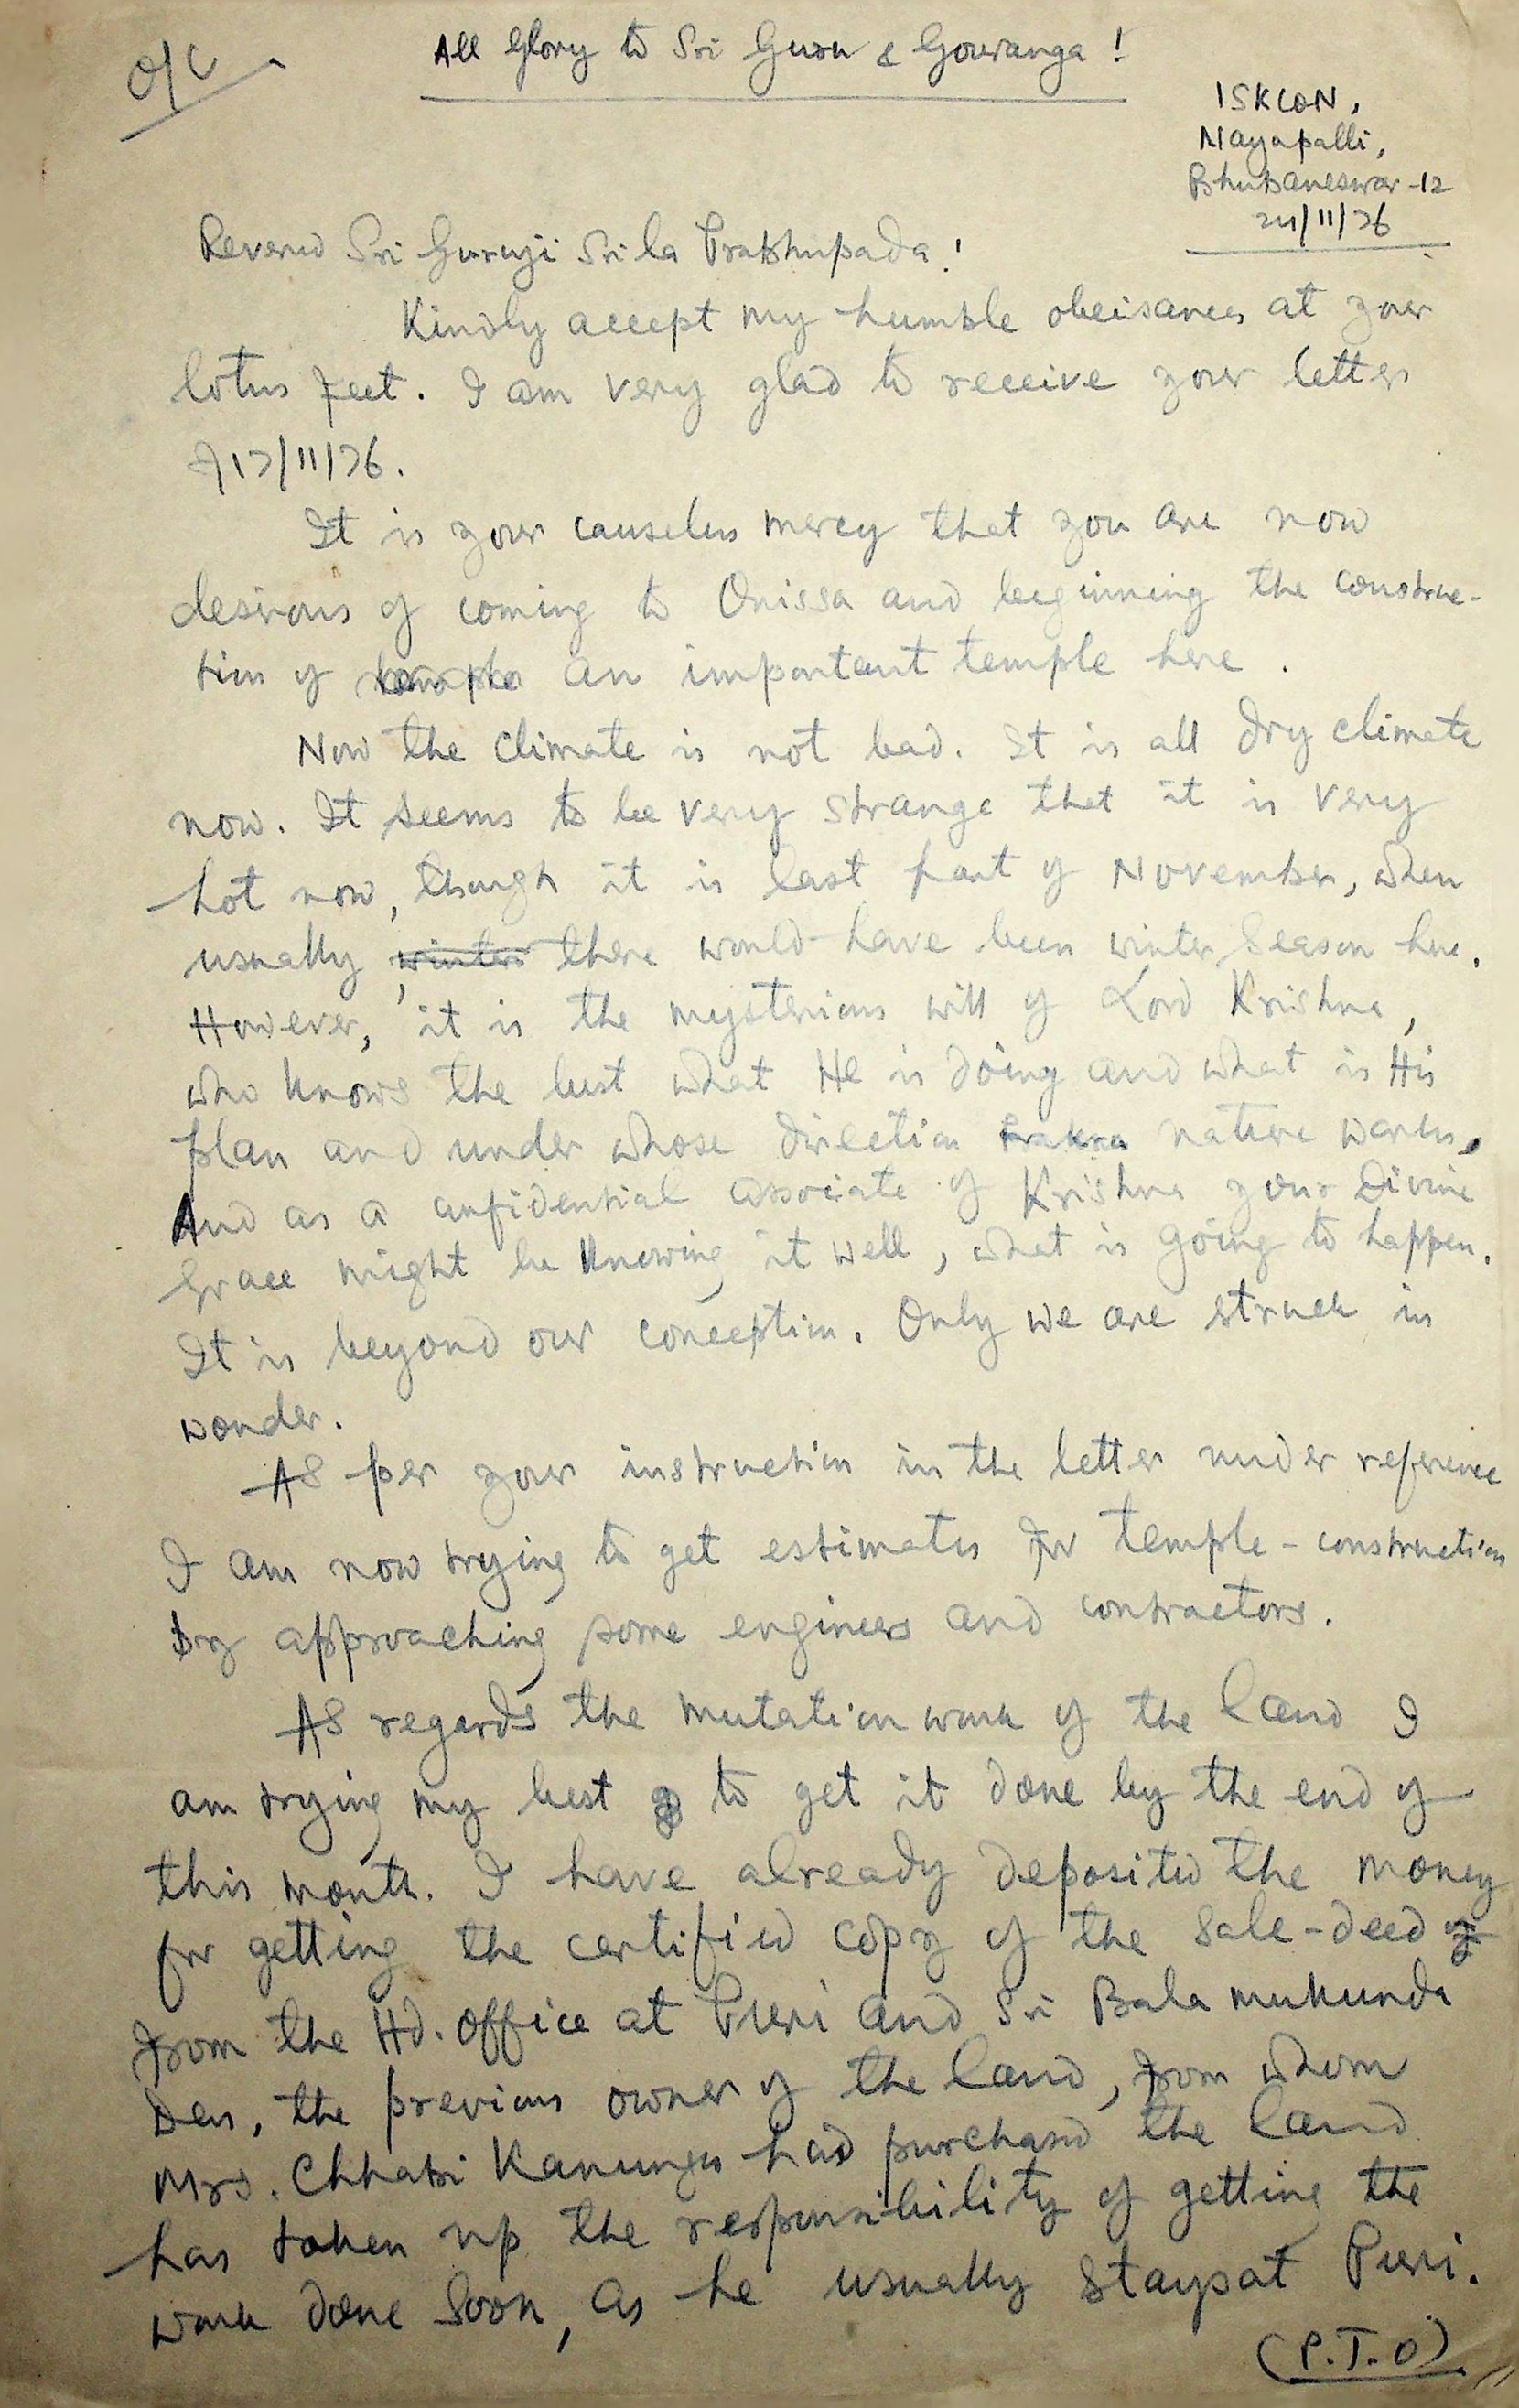 O/C
All Glory to Sri Guru & Gouranga!
ISKCON,
Nayapalli,
Bhubaneswar-12
24/11/76
Reverend Sri Guruji Srila Prabhupada!
Kindly accept my humble obeisances at your
lotus feet. I am very glad to receive your letter
of 17/11/76.
It is your causeless mercy that you are now
desirous of coming to Orissa and beginning the construc-
tion of an important temple here.
Now the climate is not bad. It is all dry climate
now. It seems to be very strange that it is very
hot now, though it is last part of November, when
usually winter there would have been winter season here.
However, it is the mysterious will of Lord Krishna,
who knows the best what He is doing and what is His
plan and under whose direction nature works,
And as a confidential associate of Krishna your Divine
Grace might be knowing it well, what is going to happen.
It is beyond our conception. Only we are struck in
wonder.
As per your instruction in the letter under reference
I am now trying to get estimates for temple-construction
by approaching some engineers and contractors.
As regards the mutation work of the land I
am trying my best to get it done by the end of
this month. I have already deposited the money
for getting the certified copy of the sale-deed
from the Hd. office at Puri and Sri Bala mukunda
Das, the previous owner of the land, from whom
Mrs. Chhabi Kanungo had purchased the land
has taken up the responsibility of getting the
work done soon, as he usually stays at Puri.
(P.T.O)